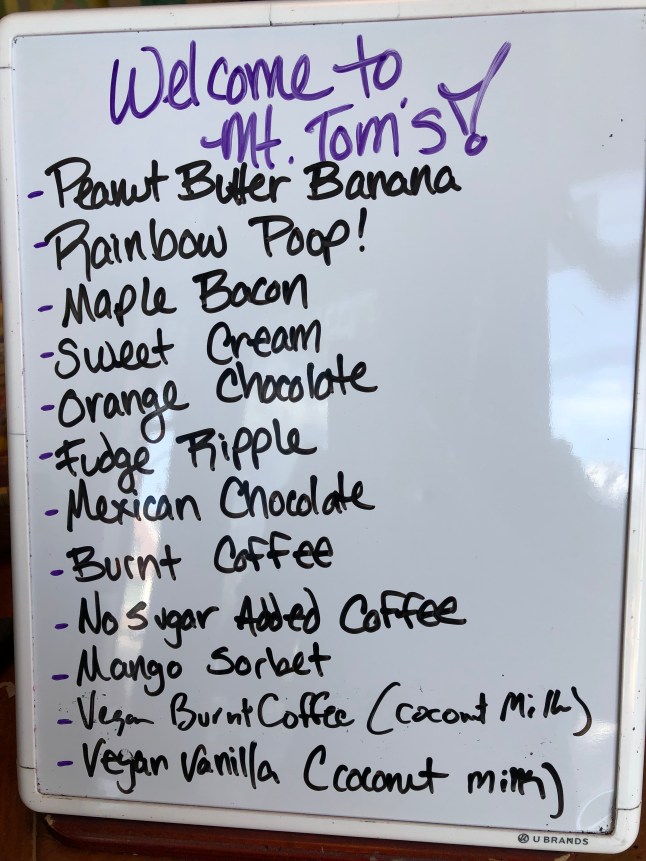 Welcome to
Mt. Tom's!
- Peanut Butter Banana
- Rainbow Poop!
- Maple Bacon
- Sweet Cream
- Orange Chocolate
- Fudge Ripple
- Mexican Chocolate
- Burnt Coffee
- No Sugar Added Coffee
- Mango Sorbet
- Vegan Burnt Coffee (Coconut Milk)
- Vegan Vanilla (Coconut milk)
U BRANDS